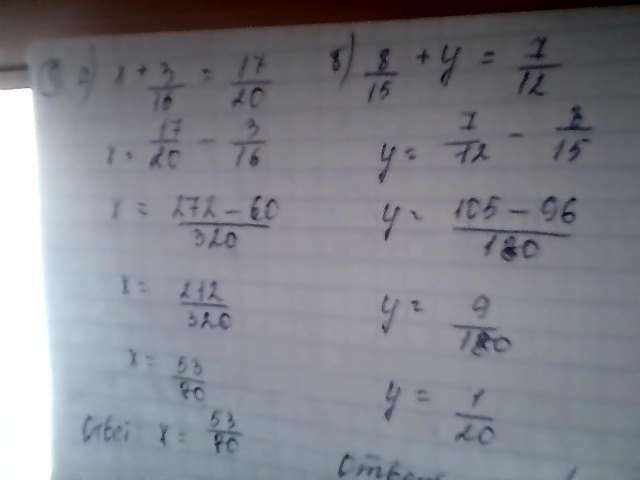 а) x + 3/16 = 17/20
x = 17/20 - 3/16
x = 272 - 60/320
x = 212/320
x = 53/70
Ответ x = 53/70
б) 8/15 + y = 7/12
y = 7/12 - 8/15
y = 105 - 96/180
y = 9/180
y = 1/20
Ответ